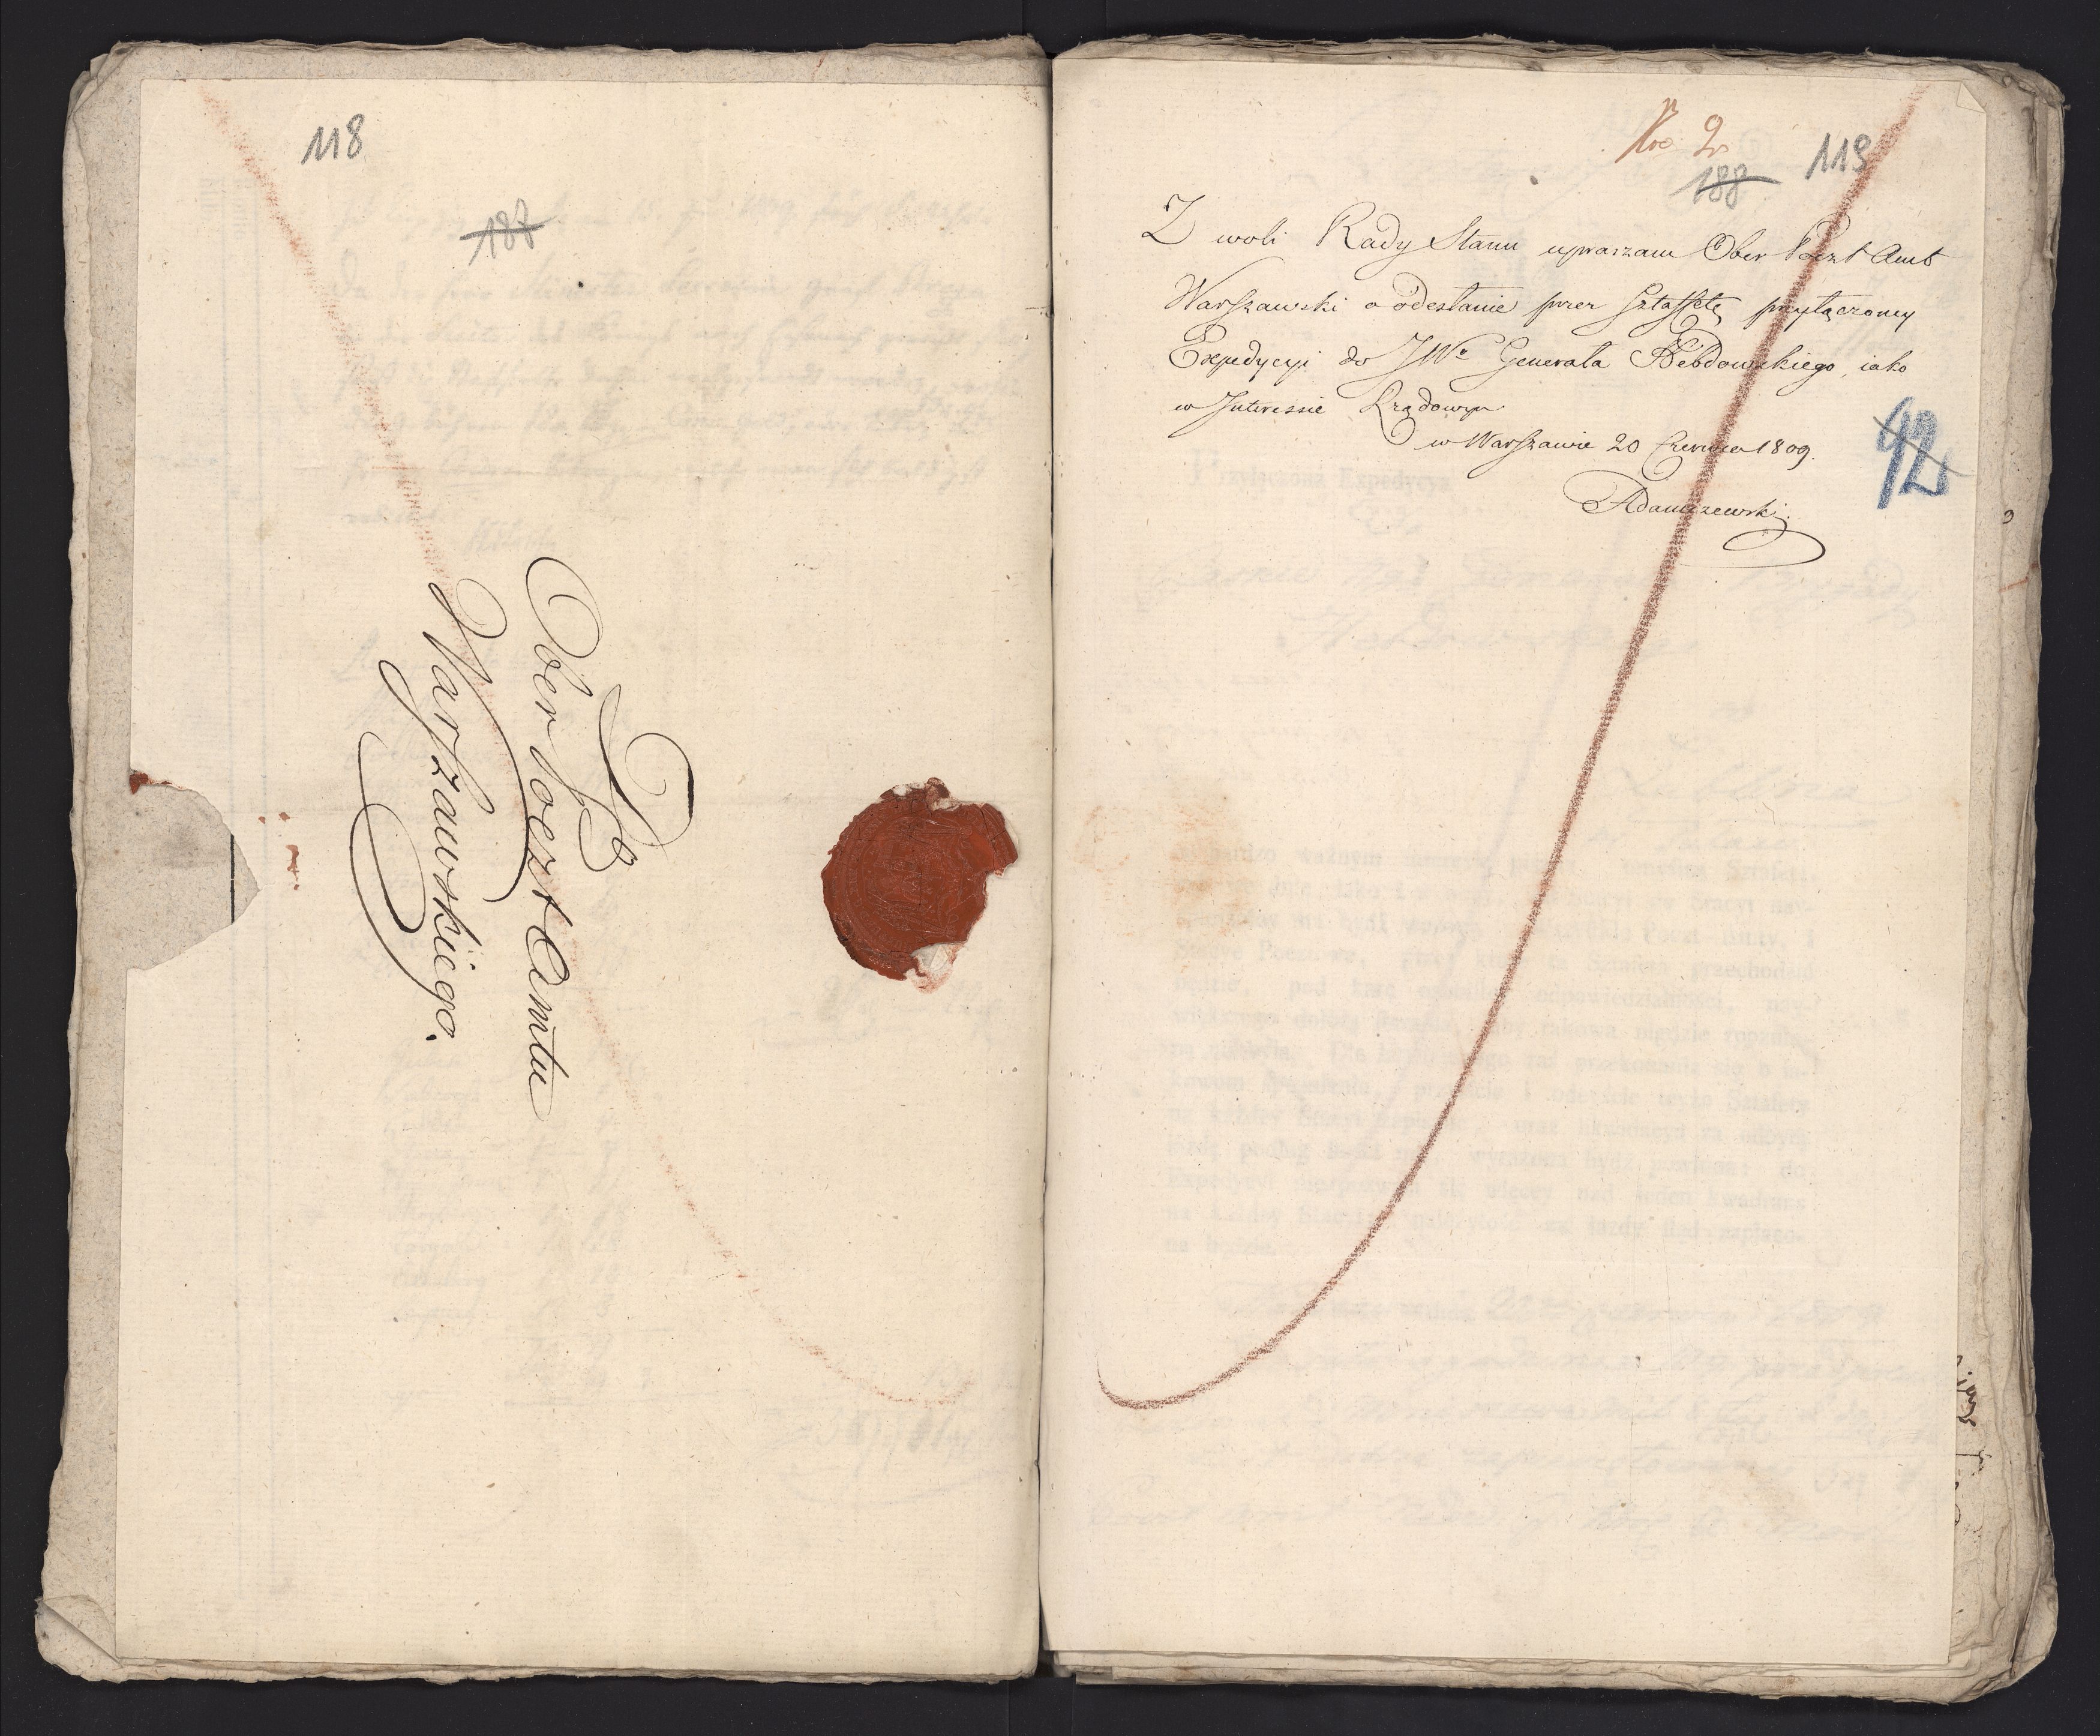 118
187
Do
Ober Poczt Amtu
Warszawskiego.
Nro 2.
119
188
Z woli Rady Stanu upraszam Ober Poczt Amt
Warszawski o odesłanie przez Sztaffetę przyłączoney
Expedycyi do JWo Generała Hebdowskiego, iako
w Interessie Rządowym.
w Warszawie 20 Czerwca 1809.
Adamczewski.
92